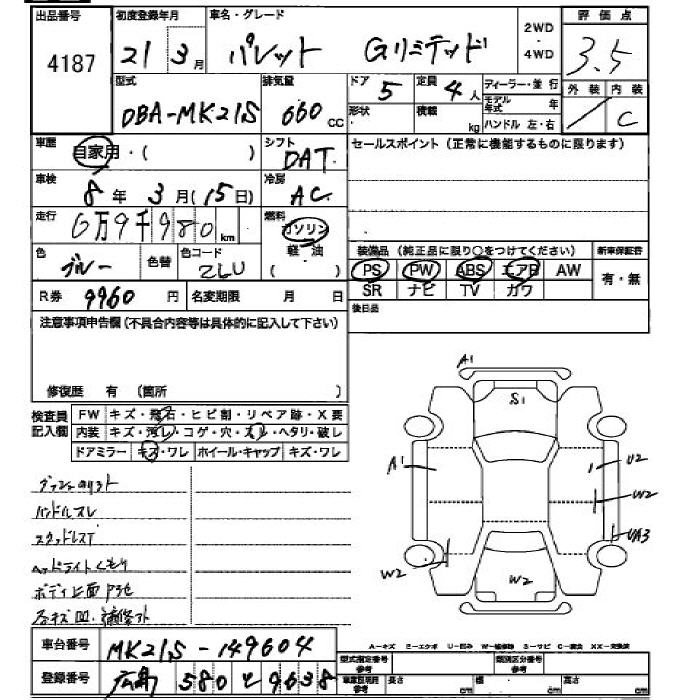 出品番号 初度登録年月 車名・グレード 2WD ・ 4WD 評価点
4187 21年 3月 パレット Gリミテッド 3.5
型式 排気量 ドア 定員 ディーラー・並行 外装 内装
DBA-MK21S 660 CC 5 4人 モデル年式 年 / C
形状 積載 kg ハンドル 左・右
車歴 自家用・( ) シフト DAT セールスポイント(正常に機能するものに限ります)
車検 8年 3月(15日) 冷房 AC
走行 6万9千980km 燃料 ガソリン 軽・油 ( )
装備品(純正品に限り○をつけてください) 新車保証書
色 ブルー 色替 色コード ZLU
PS PW ABS エアB AW 有・無
SR ナビ TV カワ
R券 9960円 名変期限 月 日
後日品
注意事項申告欄(不具合内容等は具体的に記入して下さい)
修復歴 有 (箇所 )
検査員記入欄 FW キズ・飛石・ヒビ割・リペア跡・X要
内装 キズ・汚レ・コゲ・穴・スレ・ヘタリ・破レ
ドアミラー キズ・ワレ ホイール・キャップ キズ・ワレ
A1
S1
A1 U2
W2
UA3
W2 W2
ハンドルスレ
スタッドレスT
ヘッドライトくもり
車台番号 MK21S-149604
登録番号 広島 580 と 9638
A-キズ E-エクボ U-凹み W-補修跡 S-サビ C-腐食 XX-交換済
型式指定番号 参考 類別区分番号 参考
長さ cm 幅 cm 高さ cm